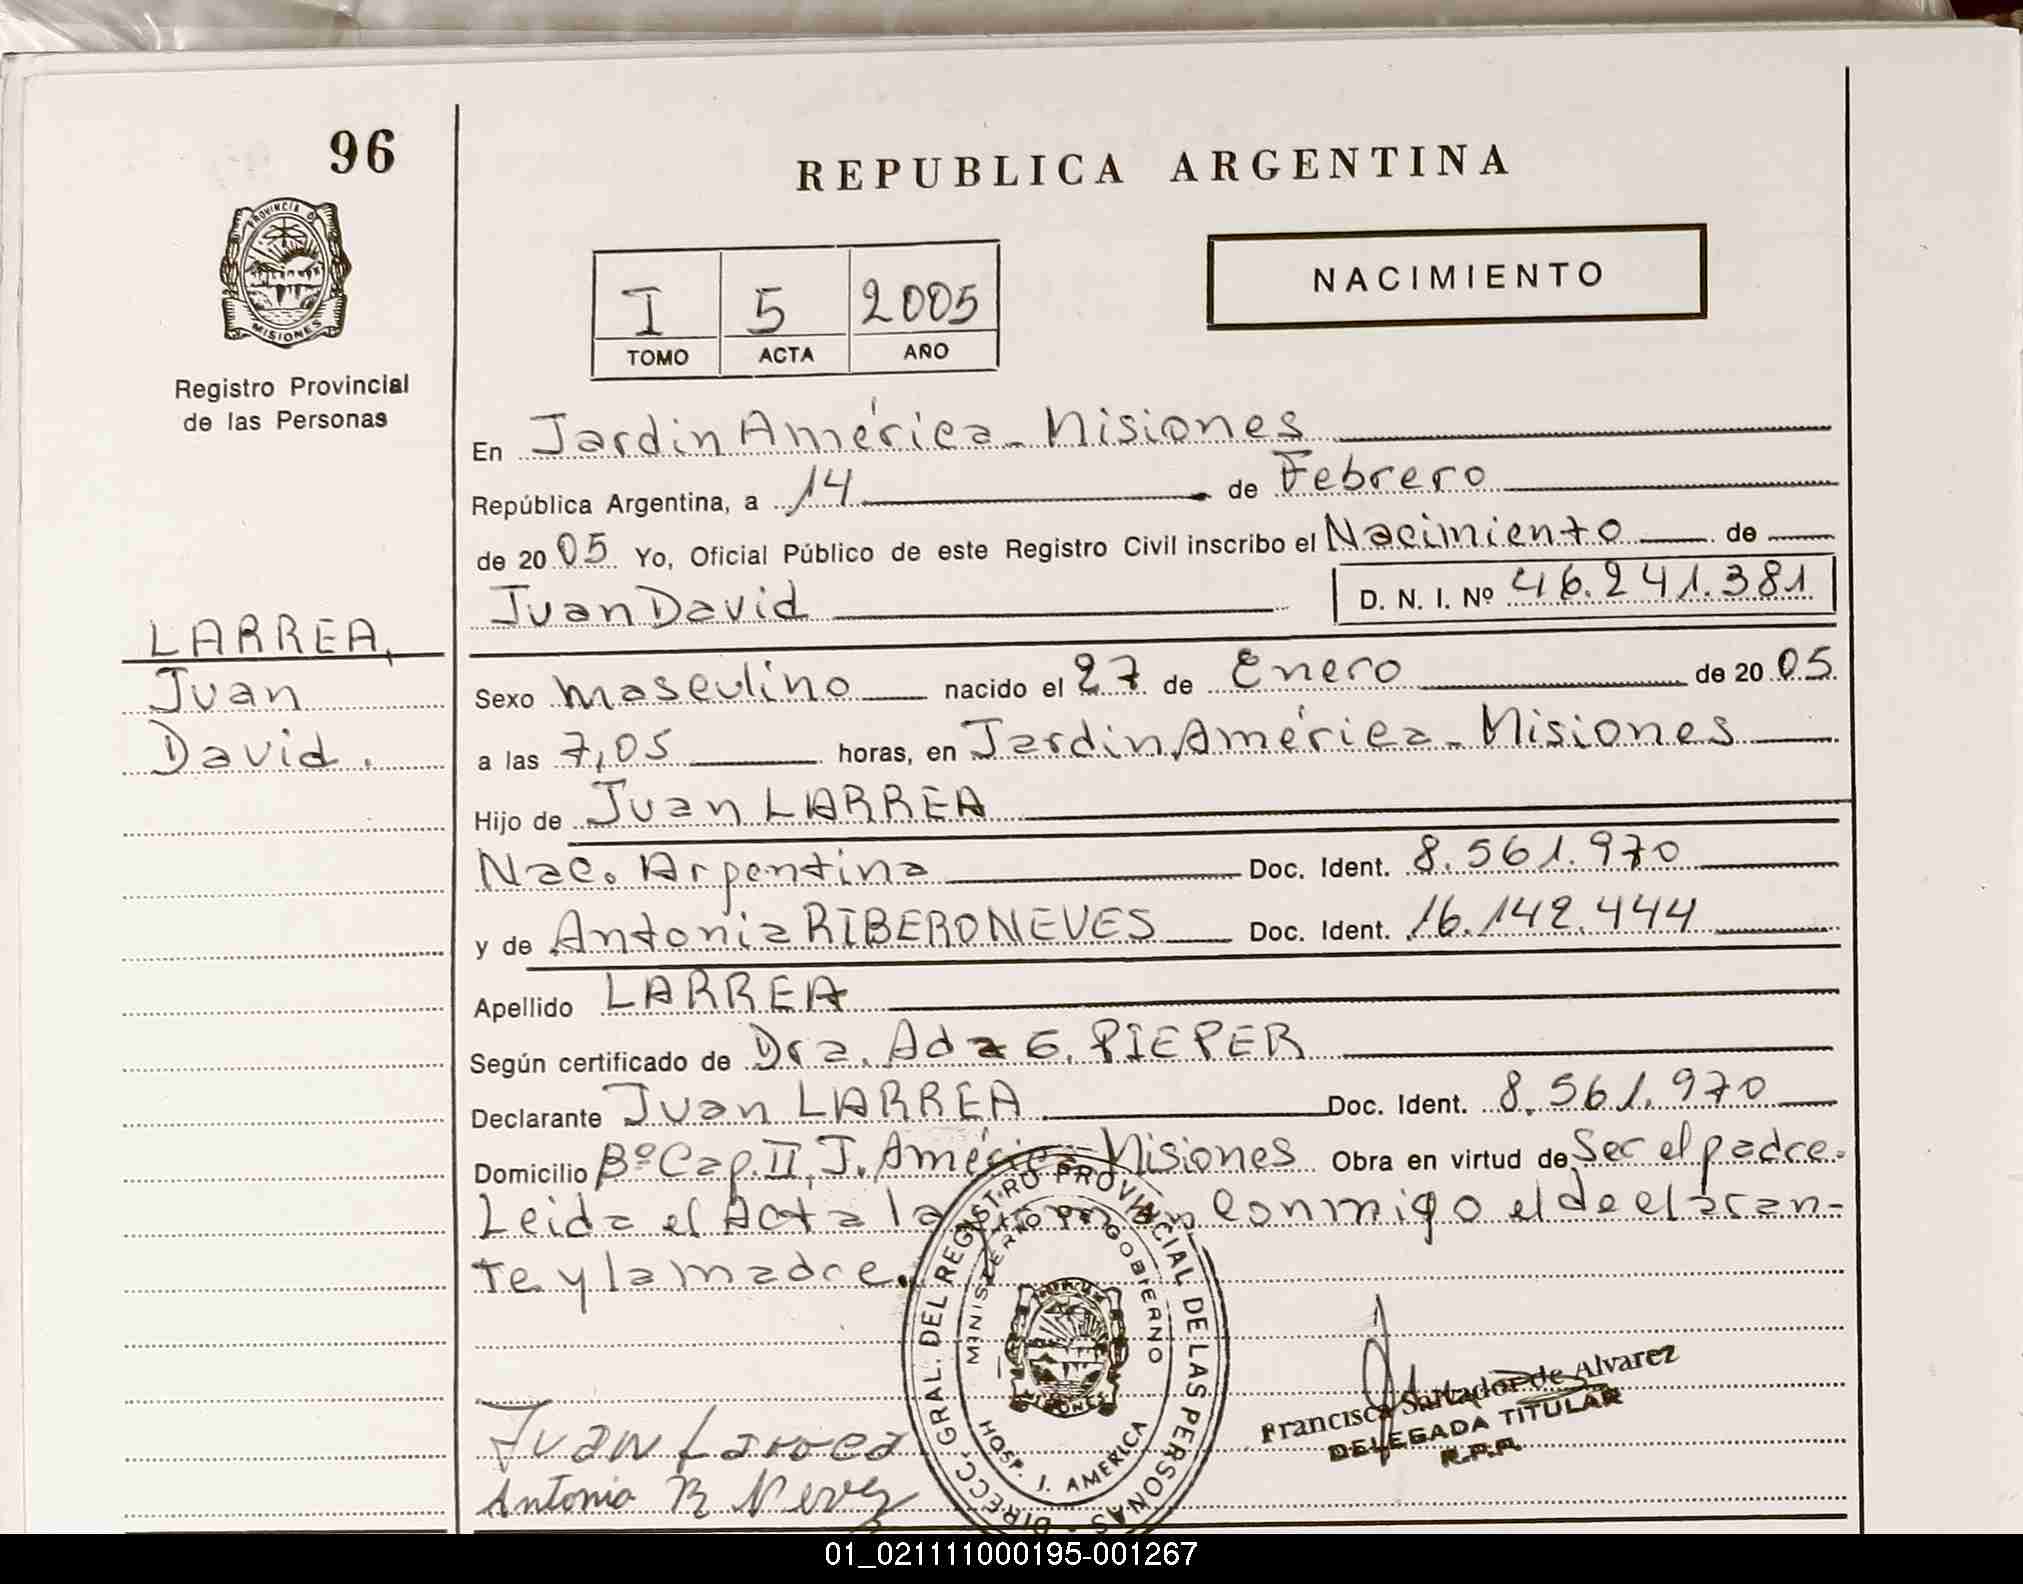 96
REPUBLICA ARGENTINA
PROVINCIA D
MISIONES
Registro Provincial
de las Personas
NACIMIENTO
I 5 2005
TOMO ACTA AÑO
En Jardin América - Misiones
República Argentina, a 14 de Febrero
de 2005 Yo, Oficial Público de este Registro Civil inscribo el Nacimiento de
Juan David D. N. I. Nº 46.241.381
LARREA,
Juan
David.
Sexo masculino nacido el 27 de Enero de 2005.
a las 7,05 horas, en Jardin América - Misiones
Hijo de Juan LARREA
Nac. Argentina Doc. Ident. 8.561.970
y de Antonia RIBERO NEVES Doc. Ident. 16.142.444
Apellido LARREA
Según certificado de Dra. Ada G. PIEPER
Declarante Juan LARREA Doc. Ident. 8.561.970
Domicilio Bº Cap. II, J. América - Misiones Obra en virtud de Ser el padre.
Leida el Acta la conmigo el declaran-
te y la madre.
DIRECC. GRAL. DEL REGISTRO PROVINCIAL DE LAS PERSONAS
MINISTERIO DE GOBIERNO
HOSP. J. AMERICA
Francisca de Alvarez
DELEGADA TITULAR
R.P.P.
Juan Larrea
Antonia R Neves
01_021111000195-001267